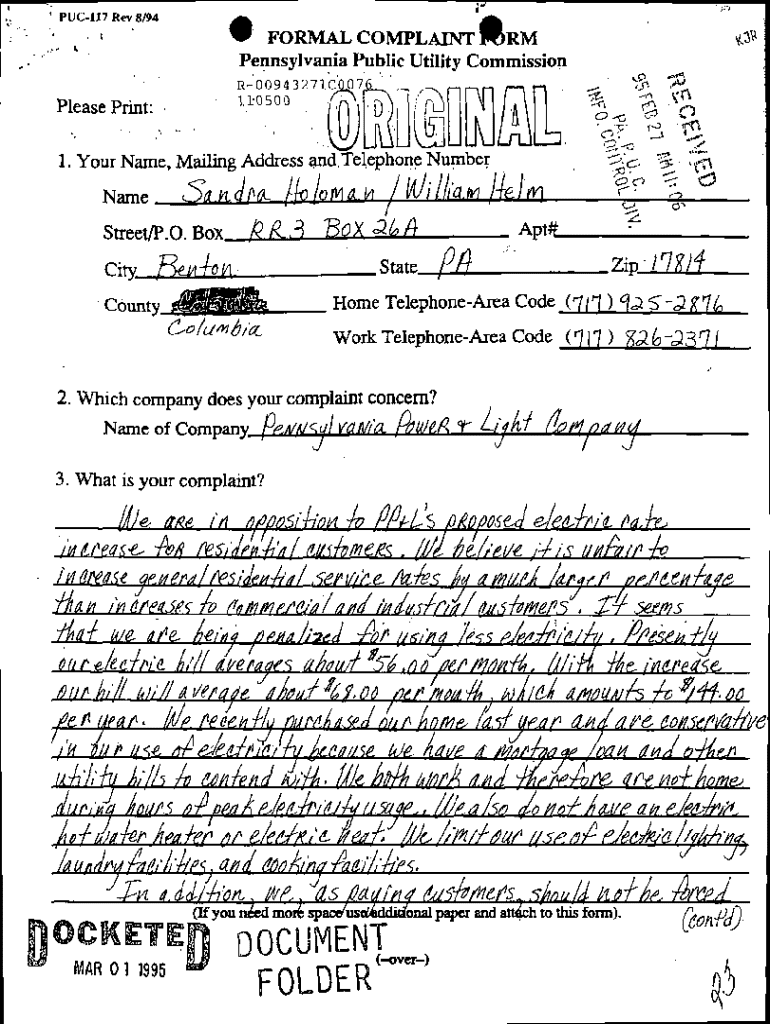 PUC-117 Rev 8/94
FORMAL COMPLAINT FORM
KJR
Pennsylvania Public Utility Commission
R-00943271C0076
110500
Please Print:
ORIGINAL
RECEIVED
95 FEB 27 AM 11:06
PA. P. U. C.
INFO. CONTROL DIV.
1. Your Name, Mailing Address and Telephone Number
Name Sandra Holoman / William Helm
Street/P.O. Box RR3 Box 26A Apt#
City Benton State PA Zip 17814
County Home Telephone-Area Code (717) 925-2876
Columbia Work Telephone-Area Code (717) 826-2371
2. Which company does your complaint concern?
Name of Company Pennsylvania Power & Light Company
3. What is your complaint?
We are in opposition to PP&L's proposed electric rate
increase for residential customers. We believe it is unfair to
increase general residential service rates by a much larger percentage
than increases to commercial and industrial customers. It seems
that we are being penalized for using less electricity. Presently
our electric bill averages about $56.00 per month. With the increase
our bill will average about $68.00 per month, which amounts to $144.00
per year. We recently purchased our home last year and are conservative
in our use of electricity because we have a mortgage loan and other
utility bills to contend with. We both work and therefore are not home
during hours of peak electricity usage. We also do not have an electric
hot water heater or electric heat. We limit our use of electric lighting,
laundry facilities, and cooking facilities.
In addition, we, as paying customers, should not be forced
(If you need more space use additional paper and attach to this form).
(cont'd)
DOCKETED
MAR 01 1995
DOCUMENT
FOLDER
(-over-)
23